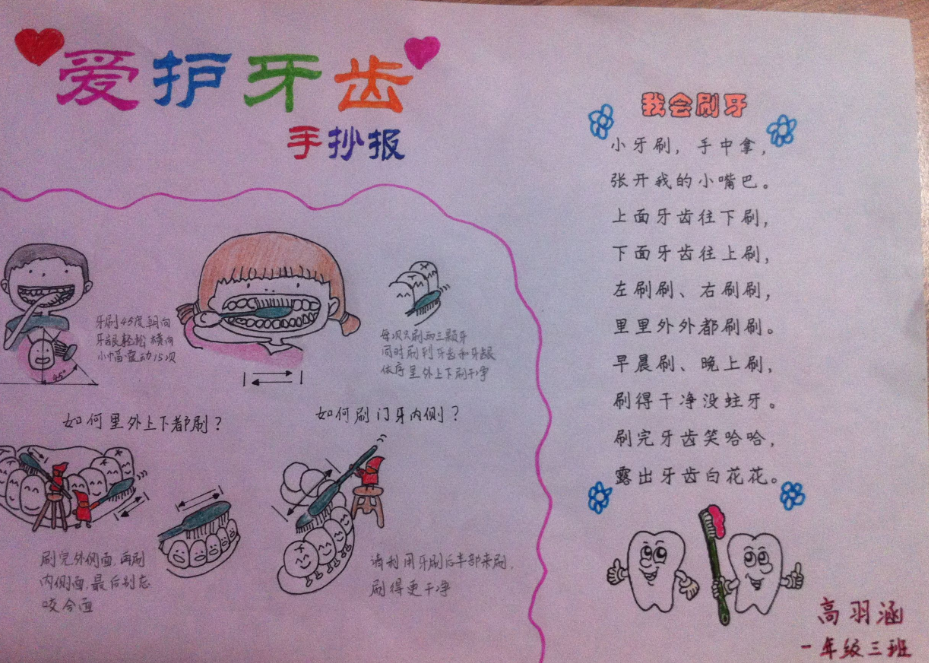 爱护牙齿
手抄报
牙刷45度朝向
牙龈轻轻横向
小幅震动15次
每次只刷两三颗牙
同时刷到牙齿和牙龈
依序里外上下刷干净
如何里外上下都刷？
如何刷门牙内侧？
刷完外侧面，再刷
内侧面，最后别忘
咬合面
请利用牙刷后半部来刷，
刷得更干净
我会刷牙
小牙刷，手中拿，
张开我的小嘴巴。
上面牙齿往下刷，
下面牙齿往上刷，
左刷刷、右刷刷，
里里外外都刷刷。
早晨刷、晚上刷，
刷得干净没蛀牙。
刷完牙齿笑哈哈，
露出牙齿白花花。
高羽涵
一年级三班